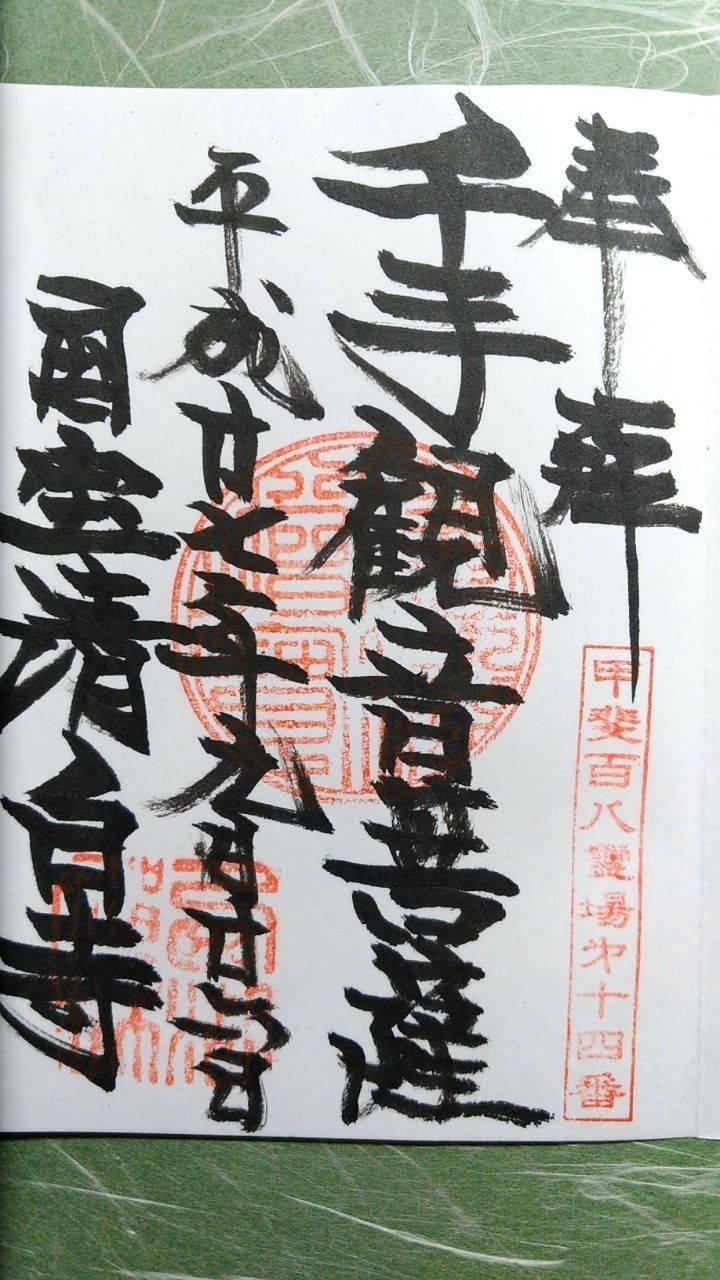 奉拝
甲斐百八霊場第十四番
千手観音菩薩
平成廿七年九月廿六日
国宝清白寺